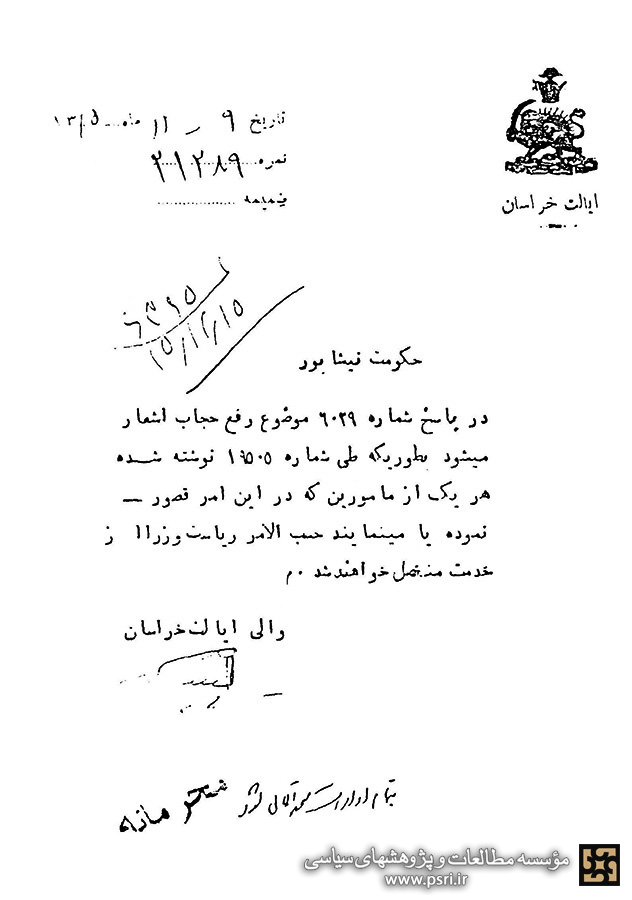 ایالت خراسان
تاریخ ۹ - ۱۱ ماه ... ۱۳۱۵
نمره ۲۱۲۸۹
ضمیمه
۱۵/۱۲/۱۵
حکومت نیشابور
در پاسخ شماره ۶۰۲۹ موضوع رفع حجاب اشعار
میشود بطوریکه طی شماره ۱۹۵۰۵ نوشته شده
هر یک از مامورین که در این امر قصور –
نموده یا مینمایند حسب الامر ریاست وزرا از
خدمت منفصل خواهند شد ۰م
والی ایالت خراسان
بتمام ادارات متحدالمال شود
مؤسسه مطالعات و پژوهشهای سیاسی
www.psri.ir